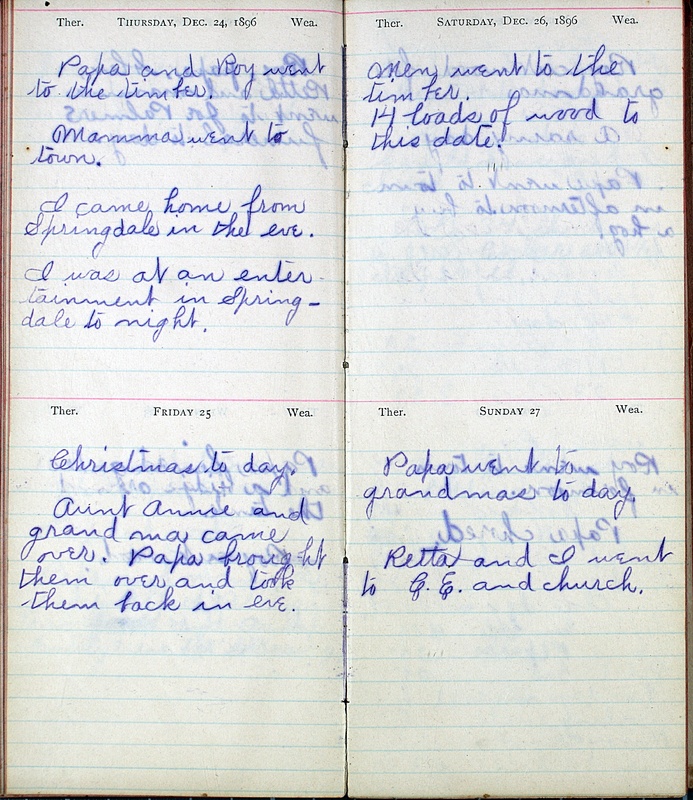 Ther. Thursday, Dec. 24, 1896 Wea.
Papa and Roy went
to the timber.
Mamma went to
town.
I came home from
Springdale in the eve.
I was at an enter-
tainment in Spring-
dale to night.
Ther. Friday 25 Wea.
Christmas to day.
Aunt Annie and
grand ma came
over. Papa brought
them over and took
them back in eve.
Ther. Saturday, Dec. 26, 1896 Wea.
Men went to the
timber.
14 loads of wood to
this date.
Ther. Sunday 27 Wea.
Papa went to
grandmas to day.
Retta and I went
to C. E. and church.